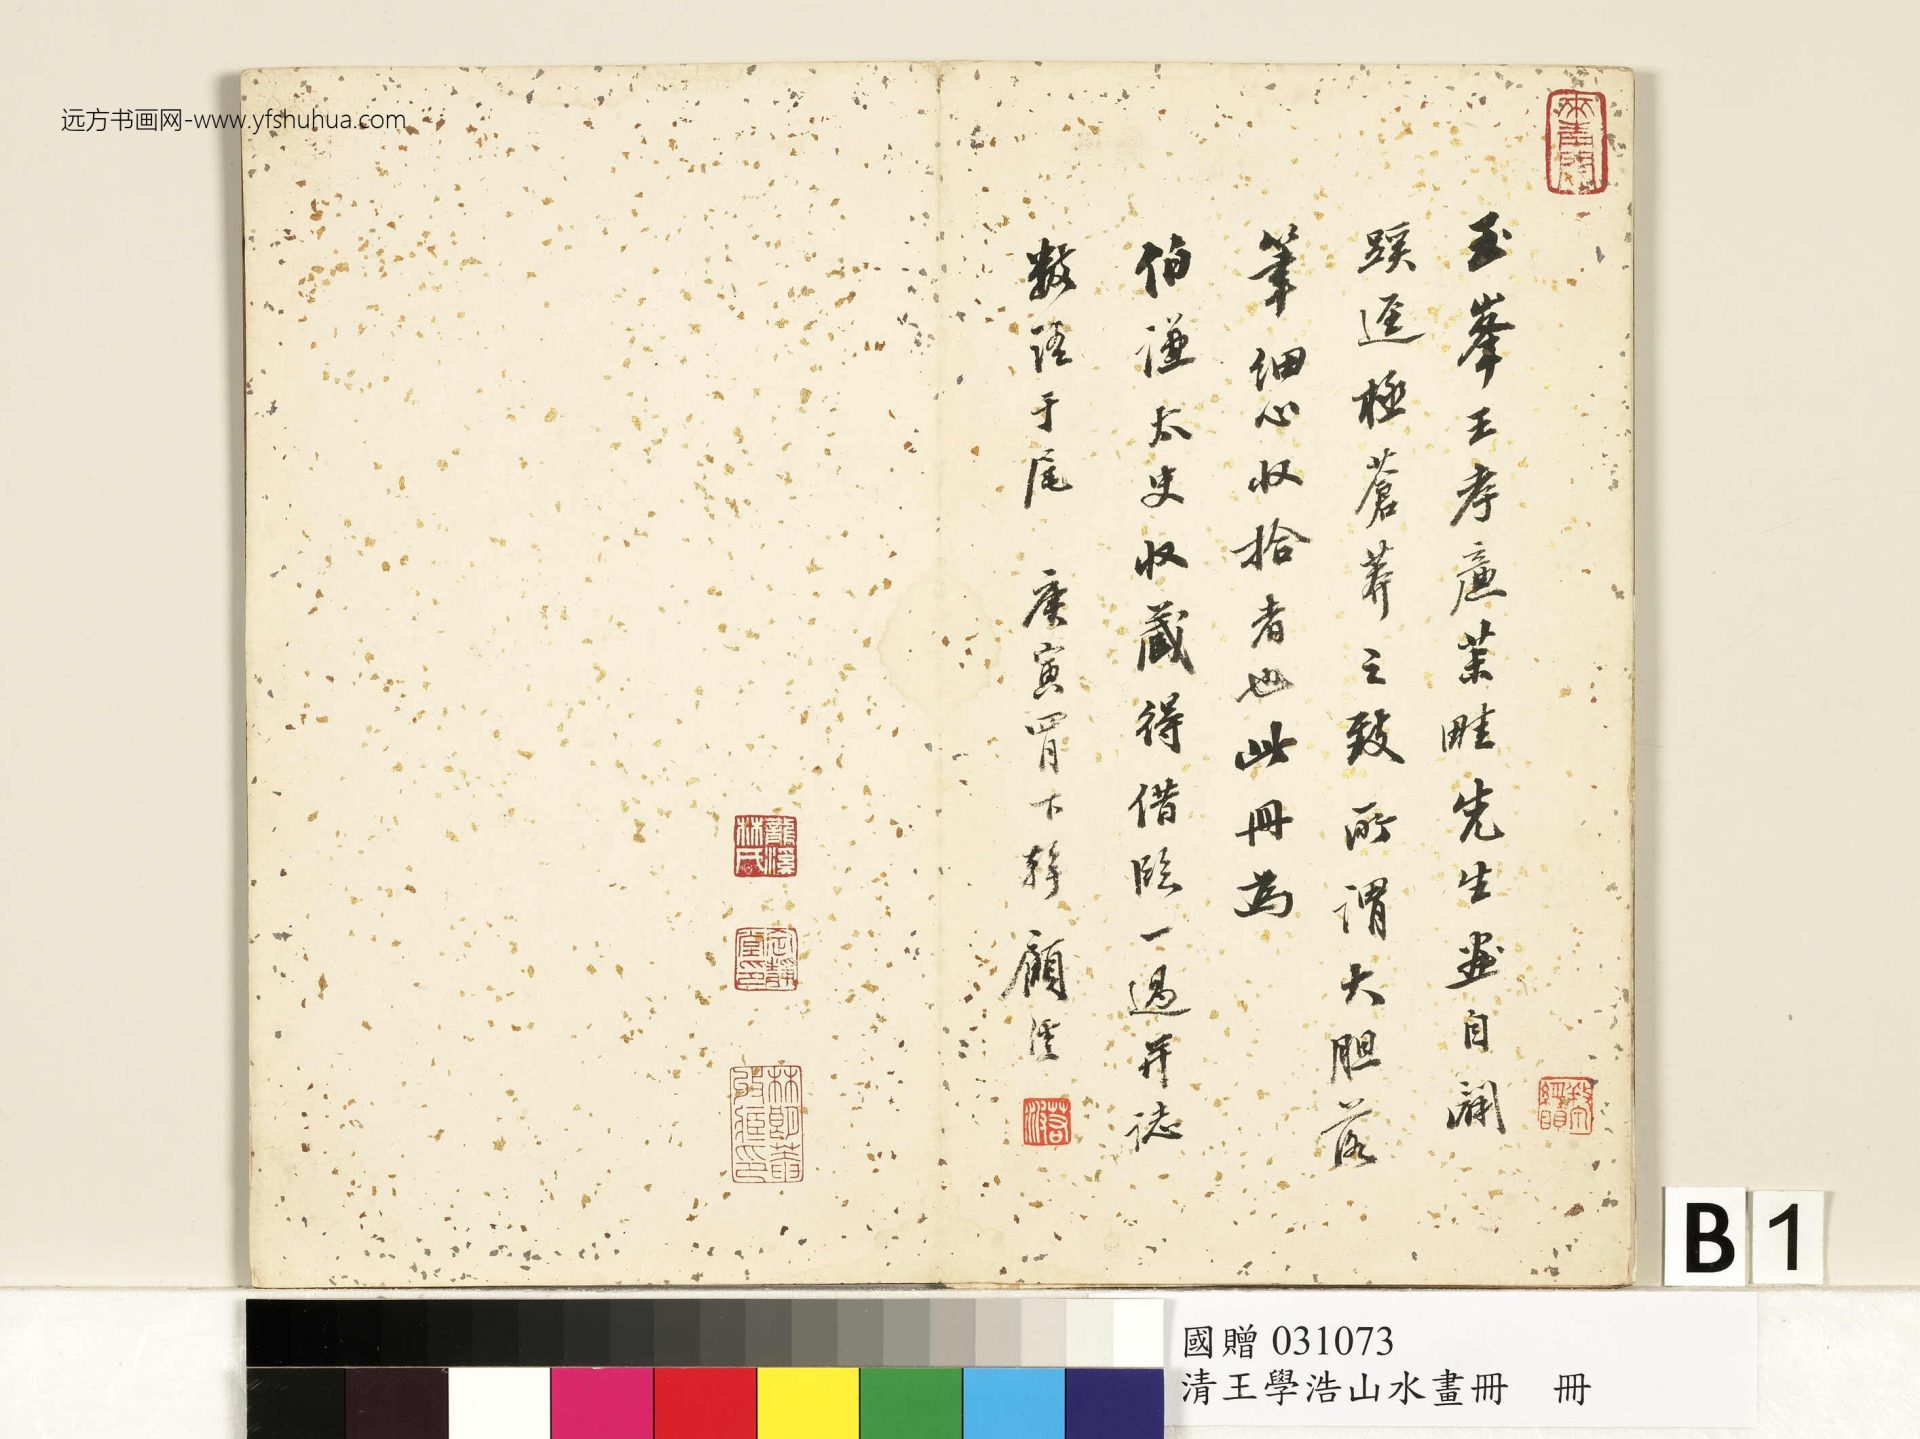 远方书画网-www.yfshuhua.com
玉峯王孝廉茉畦先生画自闢
蹊逕極蒼莽之致所謂大胆落
筆细心收拾者也此冊为
伯謙太史收藏得借臨一過并誌
数語于尾 庚寅胃下澣 顧澐
龍溪林氏
定靜堂印
B 1
國贈 031073
清王學浩山水畫冊 冊